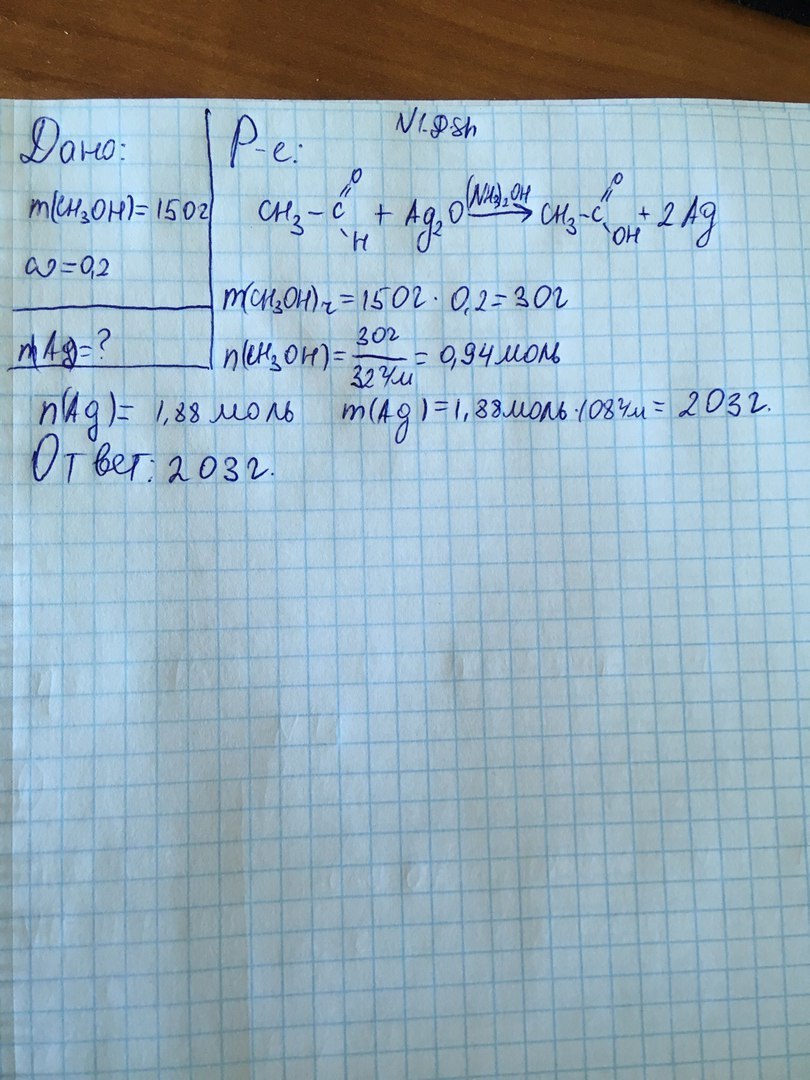 Дано:
m(CH₃OH)=150г
ω=0,2
m Ag=?
Р-е:
CH₃-C =O H + Ag₂O (NH₃)₂OH → CH₃-C =O OH + 2 Ag
m(CH₃OH)ч=150г · 0,2=30г
n(CH₃OH)= 30г / 32г/м = 0,94 моль
n(Ag)= 1,88 моль m(Ag)=1,88 моль·108г/м= 203г.
Ответ: 203г.